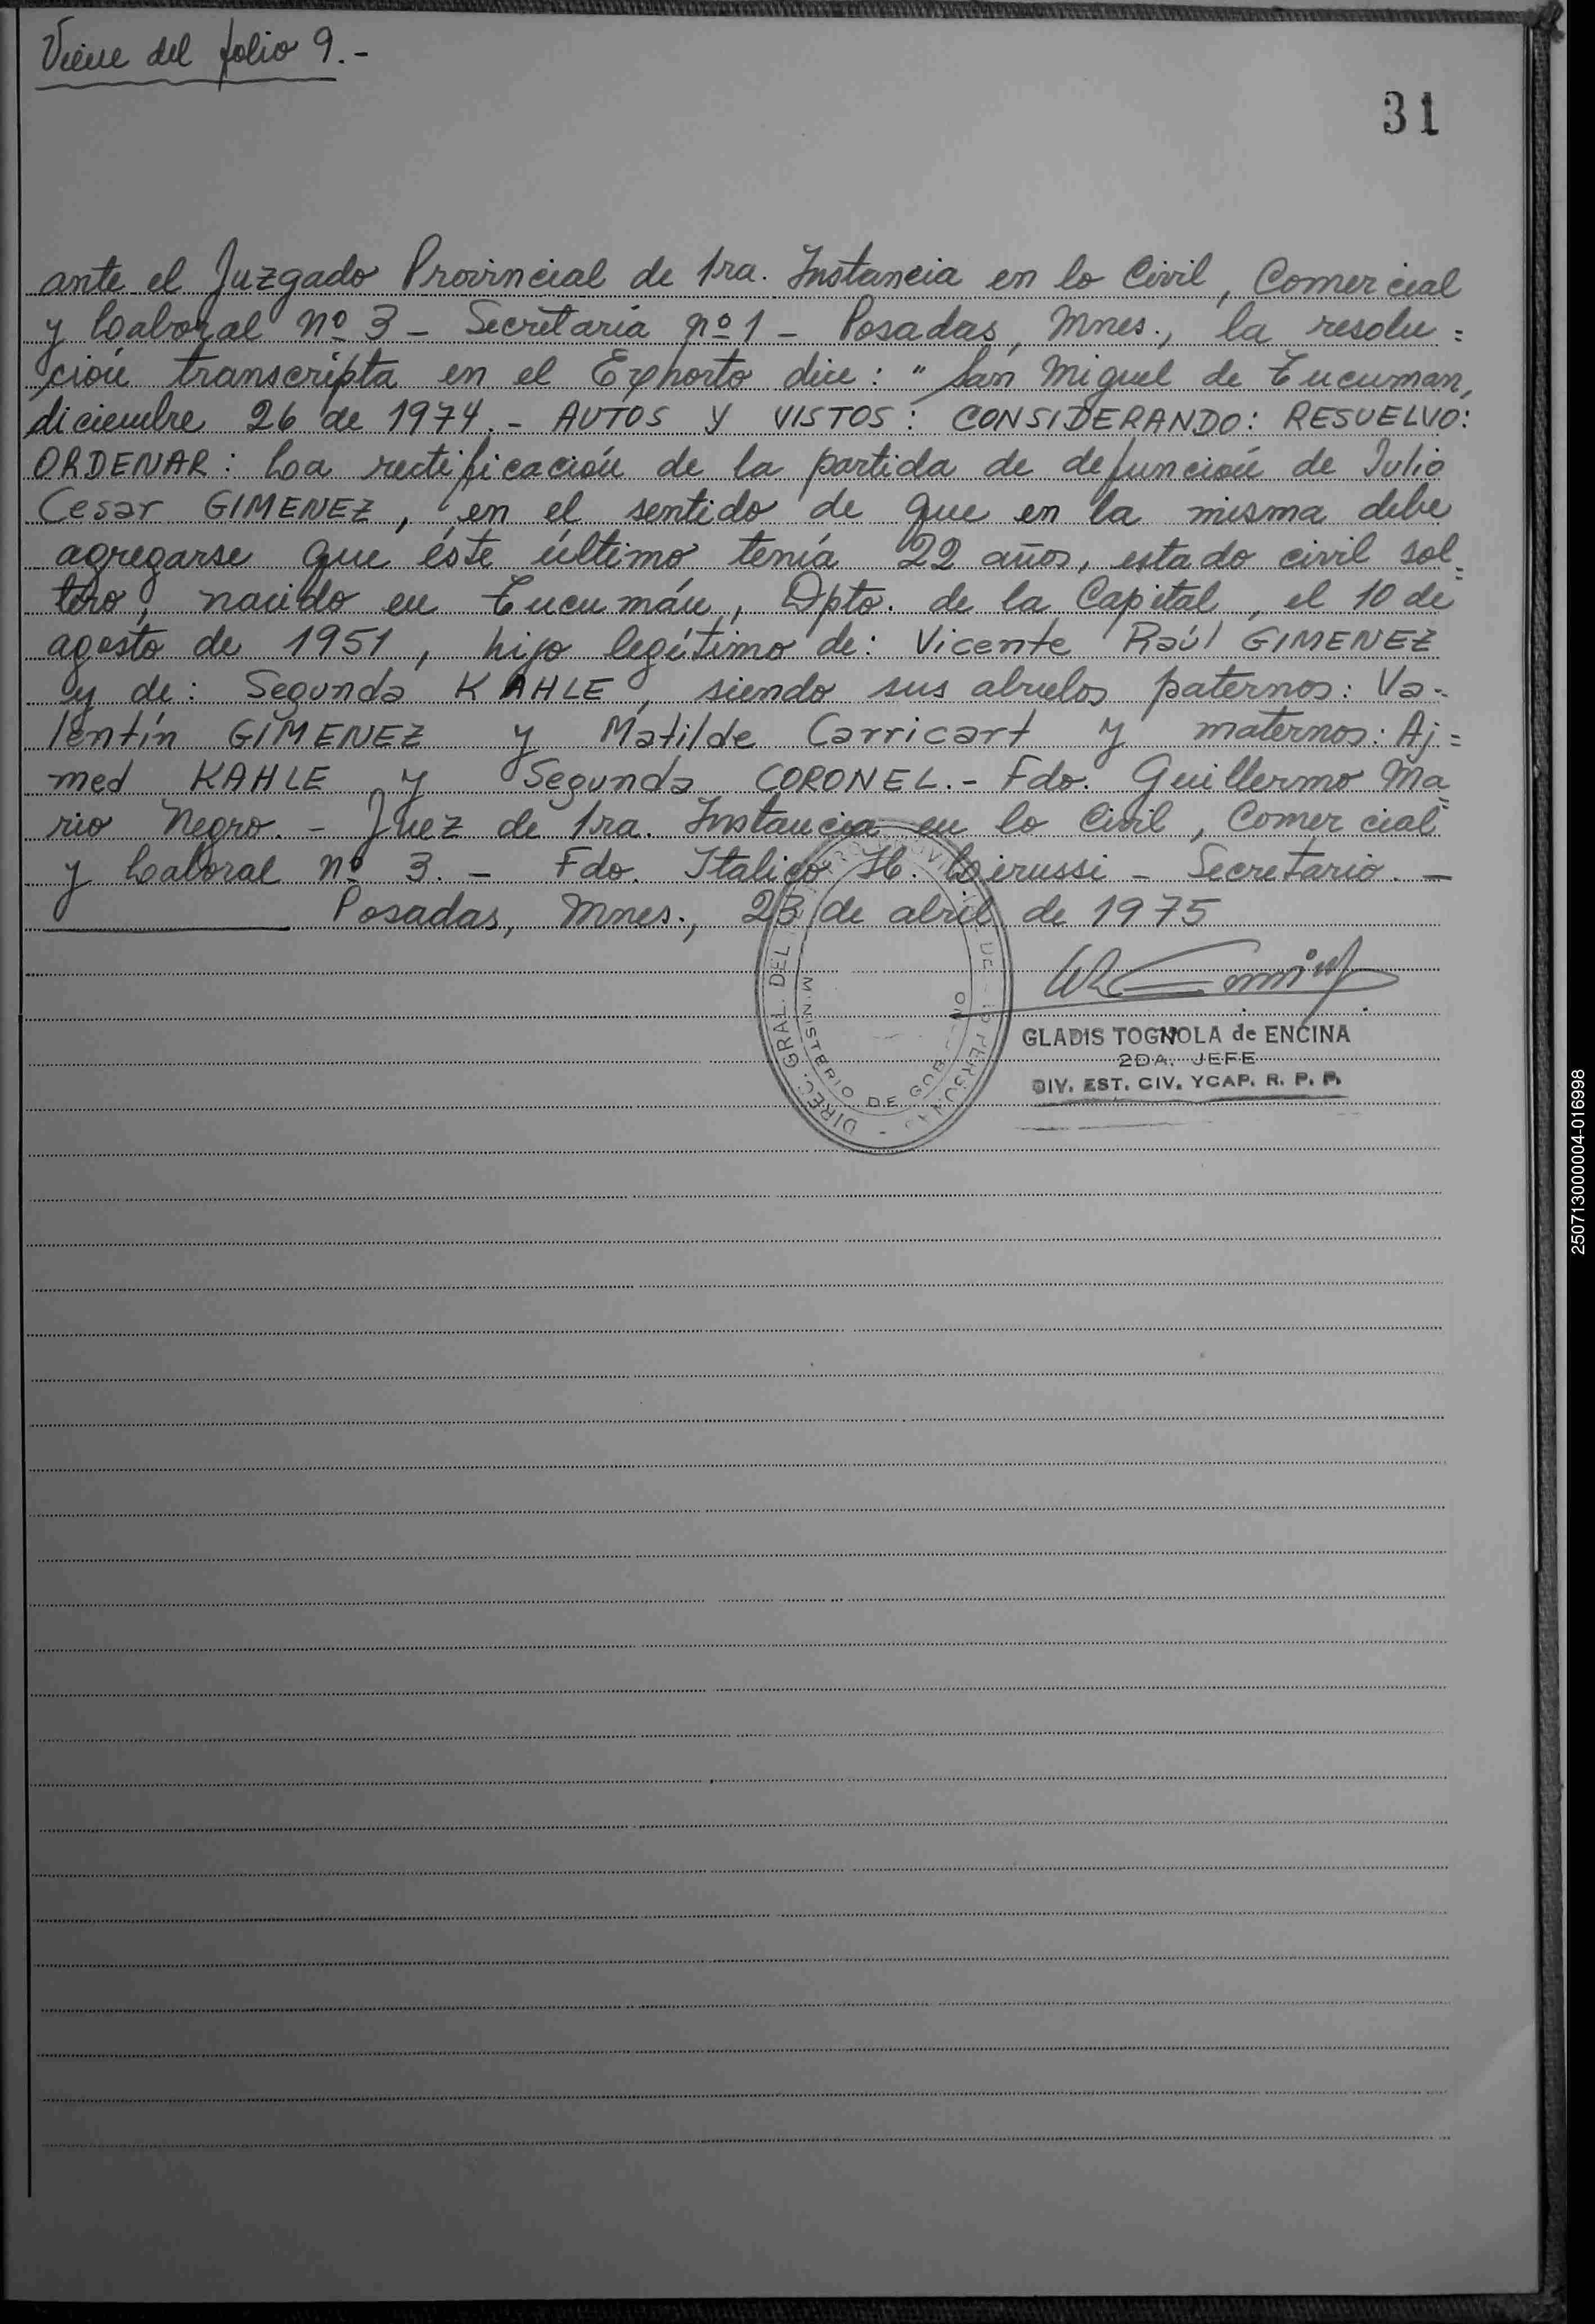 Viene del folio 9.-
31
ante el Juzgado Provincial de 1ra. Instancia en lo Civil, Comercial
y Laboral nº 3 - Secretaría nº 1 - Posadas, Mnes., la resolu=
ción transcripta en el Exhorto dice: "San Miguel de Tucuman,
diciembre 26 de 1974.- AUTOS Y VISTOS: CONSIDERANDO: RESUELVO:
ORDENAR: La rectificación de la partida de defunción de Julio
Cesar GIMENEZ, en el sentido de que en la misma debe
agregarse que éste último tenía 22 años, estado civil sol=
tero, nacido en Tucumán, Dpto. de la Capital, el 10 de
agosto de 1951, hijo legítimo de: Vicente Raúl GIMENEZ
y de: Segunda KAHLE, siendo sus abuelos paternos: Va-
lentín GIMENEZ y Matilde Carricart y maternos: Aj=
med KAHLE y Segunda CORONEL.- Fdo. Guillermo Ma=
rio Negro. - Juez de 1ra. Instancia en lo Civil, Comercial
y Laboral nº 3. - Fdo. Italico H. - Secretario. -
Posadas, Mnes., 23 de abril de 1975
DIREC. GRAL. DEL DE PERSONAS
MINISTERIO DE GOB
GLADIS TOGNOLA de ENCINA
2DA. JEFE
DIV. EST. CIV. YCAP. R. P. P.
250713000004-016998